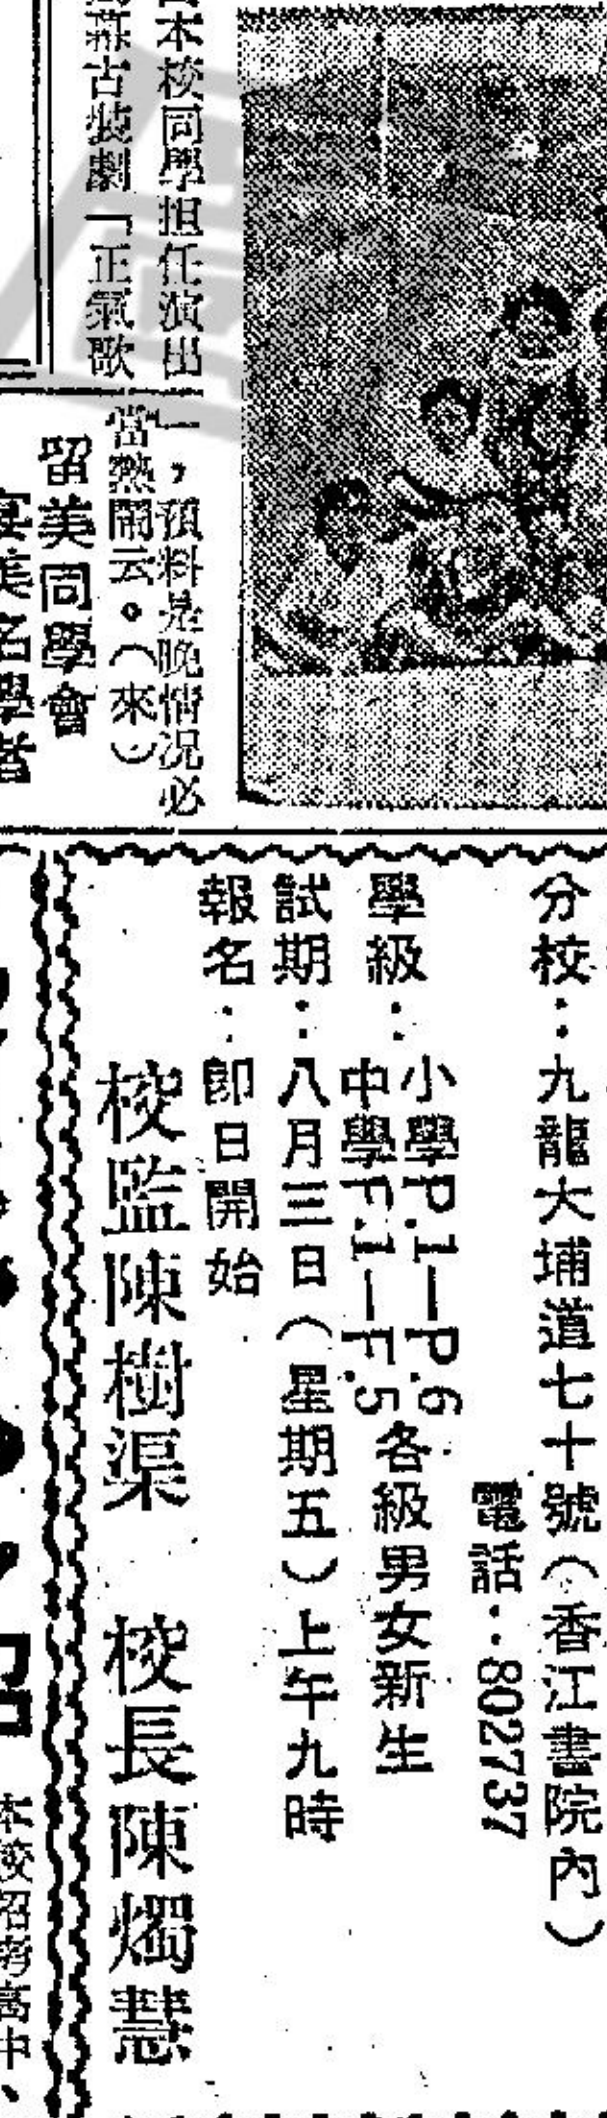 本校同學担任演出
幕古裝劇「正氣歌
」，預料是晚情况必
當熱鬧云。（來）
留美同學會
宴美名學者
分校：九龍大埔道七十號（香江書院內）
電話：802737
學級：小學P.1—P.6
中學F.1—F.5
各級男女新生
試期：八月三日（星期五）上午九時
報名：即日開始
校監陳樹渠　校長陳燭慧
本校招考高中、